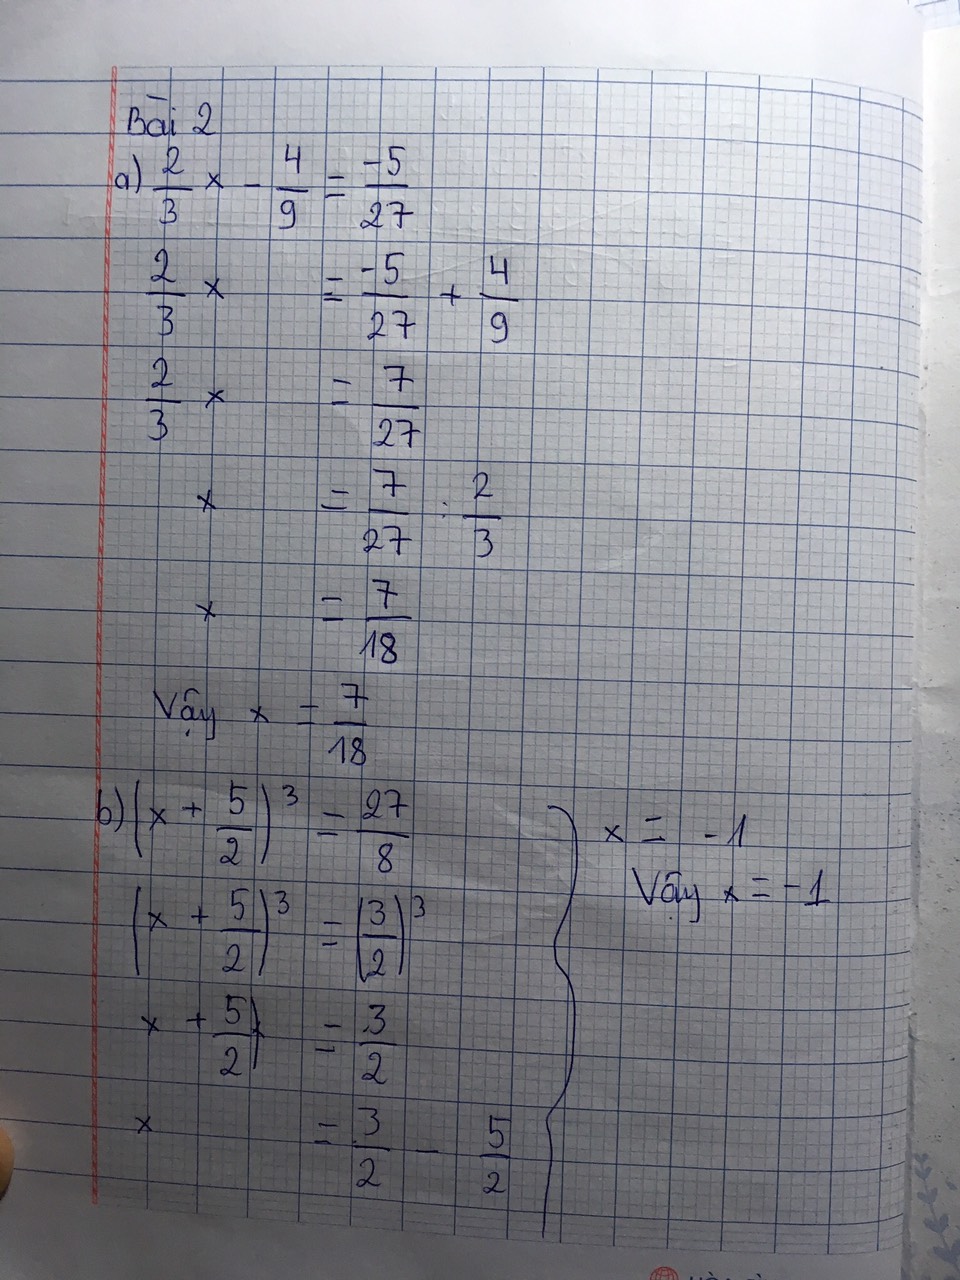 Bài 2
a) 2/3 x - 4/9 = -5/27
2/3 x = -5/27 + 4/9
2/3 x = 7/27
x = 7/27 : 2/3
x = 7/18
Vậy x = 7/18
b) (x + 5/2)³ = 27/8
(x + 5/2)³ = (3/2)³
x + 5/2) = 3/2
x = 3/2 - 5/2
x = -1
Vậy x = -1